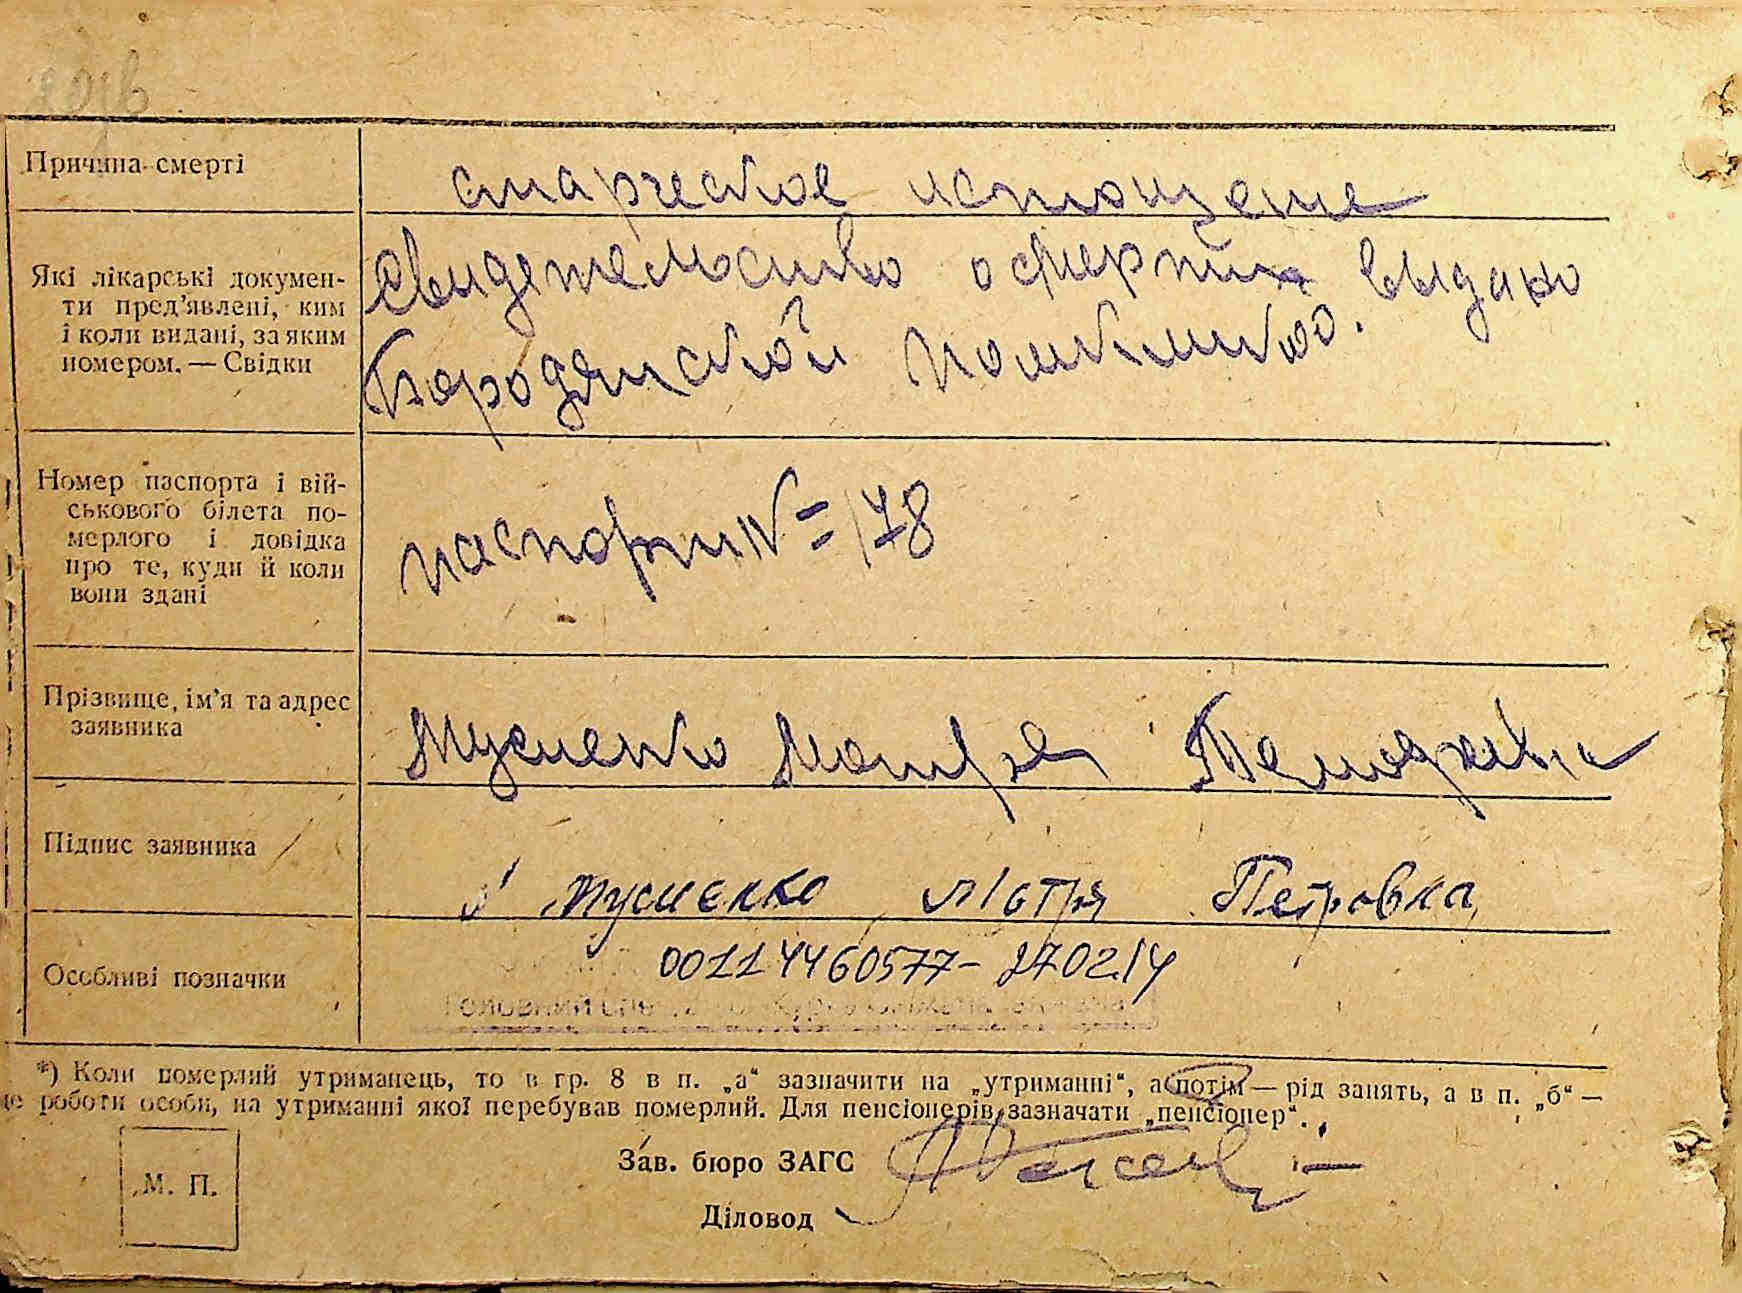 Причина смерті
старческое истощение
Які лікарські докумен-
ти пред'явлені, ким
і коли видані, за яким
номером. — Свідки
Свидетельство о смерти выдано
Бородянской поликликой.
Номер паспорта і вій-
ськового білета по-
мерлого і довідка
про те, куди й коли
вони здані
паспорт № 178
Прізвище, ім'я та адрес
заявника
Мусиенко Мотря
Підпис заявника
Мусиєнко Мотря Петровна
Особливі позначки
00114460577-270214
*) Коли померлий утриманець, то в гр. 8 в п. „а“ зазначити на „утриманні“, а потім — рід занять, а в п. „б“ —
це роботи особи, на утриманні якої перебував померлий. Для пенсіонерів зазначати „пенсіонер“.
Зав. бюро ЗАГС
М. П.
Діловод